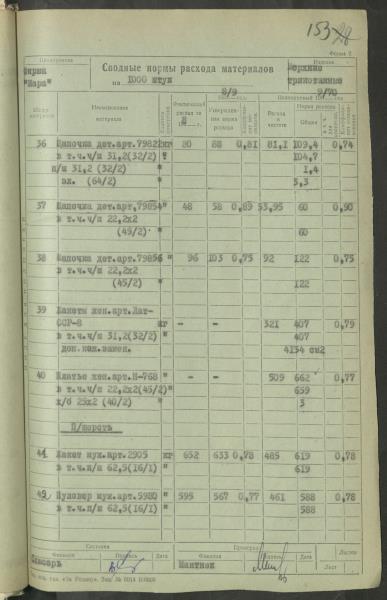 153
Форма 2
Предприятие
Фирма
"Мара"
Сводные нормы расхода материалов
на 1000 штук
Изделие
Верхние
трикотажные
8/9
9/70
Наименование
материала
Фактический
Утвержден-
ная норма
расхода
Расход
в чистоте
Норма расхода
Общая
36 Шапочка дет.арт.79822 кг 80 88 0,81 81,1 109,4 0,74
в т.ч.ч/ш 31,2(32/2) " 104,7
п/ш 31,2 (32/2) " 1,4
эл. (64/2) " 3,3
37 Шапочка дет.арт.79854 " 48 58 0,89 53,95 60 0,90
в т.ч.ч/ш 22,2х2
(45/2) " 60
38 Шапочка дет.арт.79856 " 96 103 0,75 92 122 0,75
в т.ч.ч/ш 22,2х2
(45/2) " 122
39 Жакеты жен.арт.Лат-
ССР-8 кг - - 321 407 0,79
в т.ч.ч/ш 31,2(32/2) " 407
доп.кол.замен. 4134 см2
40 Платье жен.арт.Н-768 " - - 509 662 0,77
в т.ч.ч/ш 22,2х2(45/2) " 659
х/б 25х2 (40/2) " 3
П/шерсть
44 Жакет муж.арт.2905 кг 652 633 0,78 485 619 0,78
в т.ч.п/ш 62,5(16/1) " 619
45 Пуловер муж.арт.5980 " 595 567 0,77 461 588 0,78
в т.ч.п/ш 62,5(16/1) " 588
Составил
Проверил
Листов
Фамилия Подпись Дата Фамилия Подпись Дата Лист
Слесарь
Мантнек